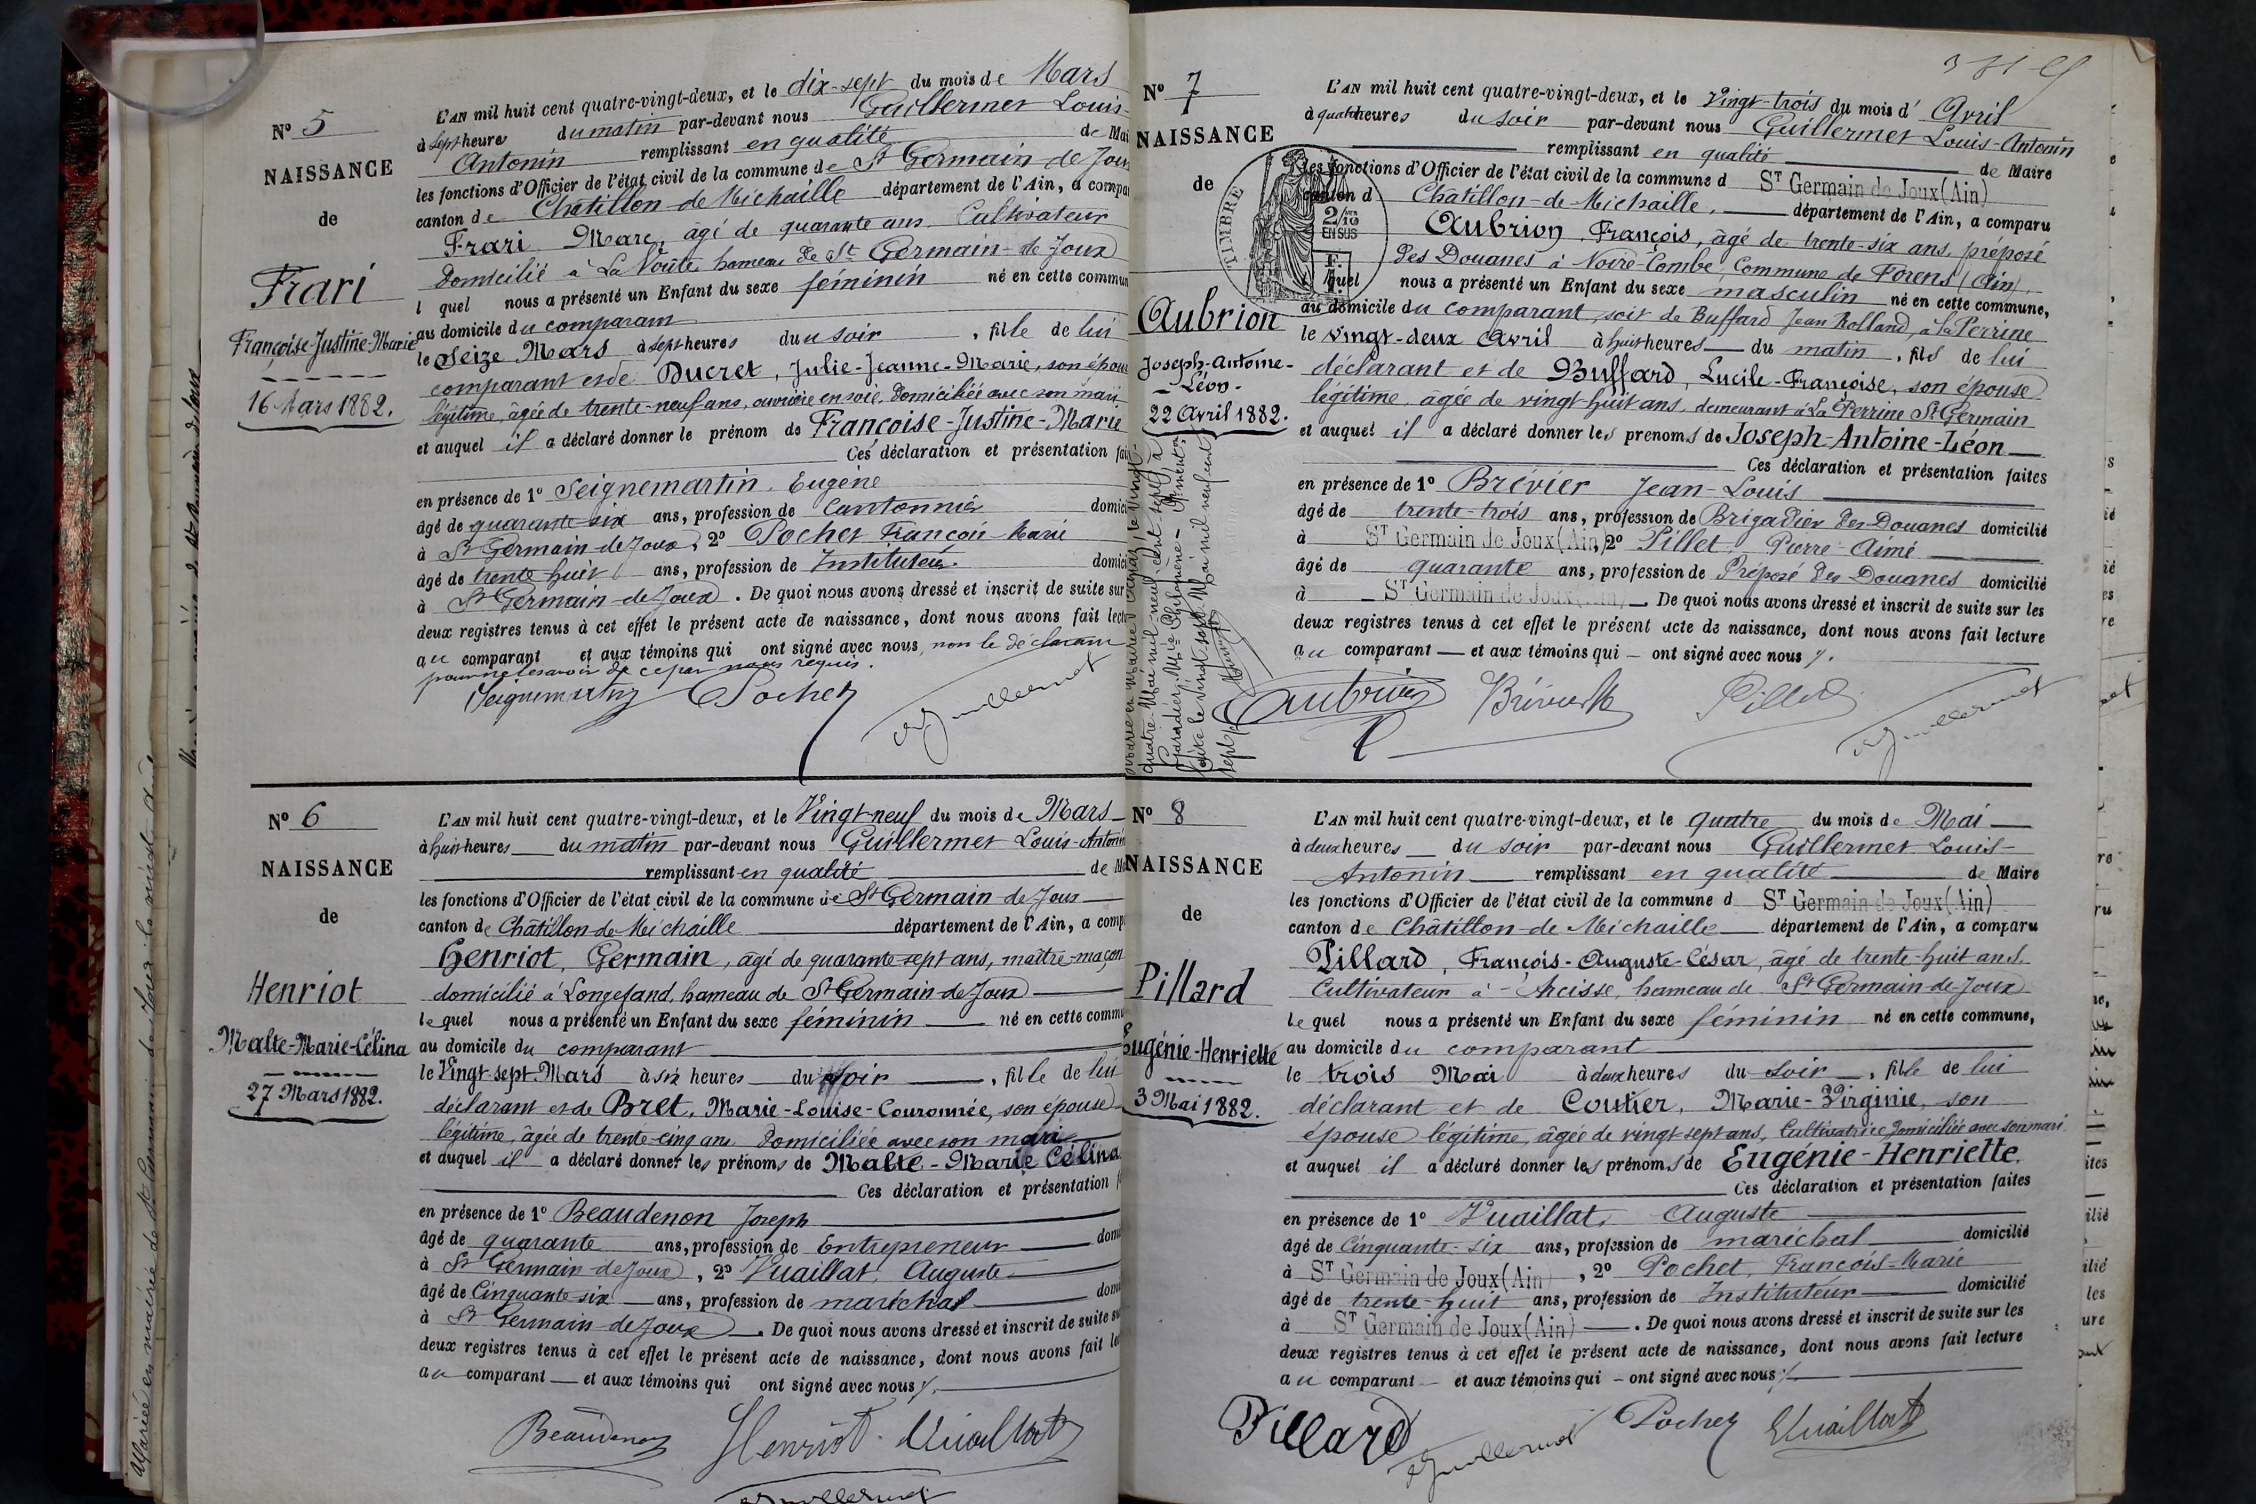 N° 5
NAISSANCE
de
Frari
Françoise-Justine-Marie
16 Mars 1882.
L'AN mil huit cent quatre-vingt-deux, et le dix-sept du mois de Mars
à sept heures du matin par-devant nous Guillermet Louis-
Antonin remplissant en qualité de Mai
les fonctions d'Officier de l'état civil de la commune de St Germain de Joux
canton de Chatillon-de-Michaille département de l'Ain, a compa
Frari Marc, âgé de quarante ans, Cultivateur
Domicilié à La Voûte hameau de St Germain-de-Joux
l quel nous a présenté un Enfant du sexe féminin né en cette commun
au domicile du comparant
le Seize Mars à sept heures du soir, fille de lui
comparant et de Ducret, Julie-Jeanne-Marie, son épouse
légitime, âgée de trente-neuf ans, ouvrière en soie, Domiciliée avec son mari
et auquel il a déclaré donner le prénom de Françoise-Justine-Marie
Ces déclaration et présentation fai
en présence de 1° Seignemartin, Eugène
âgé de quarante-six ans, profession de Cantonnier domici
à St Germain-de-Joux, 2° Pochet François-Marie
âgé de trente huit ans, profession de Instituteur domici
à St Germain-de-Joux. De quoi nous avons dressé et inscrit de suite sur
deux registres tenus à cet effet le présent acte de naissance, dont nous avons fait lect
au comparant et aux témoins qui ont signé avec nous, non le déclarant
pour ne le savoir de ce par nous requis.
Seignemartin Pochet
Guillermet
N° 6
NAISSANCE
de
Henriot
Malte-Marie-Célina
27 Mars 1882.
L'AN mil huit cent quatre-vingt-deux, et le Vingt-neuf du mois de Mars
à huit heures du matin par-devant nous Guillermet Louis-Antonin
remplissant en qualité de Ma
les fonctions d'Officier de l'état civil de la commune de St Germain de Joux
canton de Châtillon-de-Michaille département de l'Ain, a comp
Henriot, Germain, âgé de quarante-sept ans, maître-maçon
domicilié à Longefand, hameau de St Germain-de-Joux
lequel nous a présenté un Enfant du sexe féminin né en cette commu
au domicile du comparant
le Vingt-sept Mars à six heures du soir, fille de lui
déclarant et de Bret, Marie-Louise-Couronnée, son épouse
légitime, âgée de trente-cinq ans Domiciliée avec son mari
et auquel il a déclaré donner les prénoms de Malte-Marie Célina
Ces déclaration et présentation f
en présence de 1° Beaudenon Joseph
âgé de quarante ans, profession de Entrepreneur domi
à St Germain-de-Joux, 2° Vuaillat, Auguste
âgé de Cinquante-six ans, profession de maréchal domi
à St Germain-de-Joux. De quoi nous avons dressé et inscrit de suite su
deux registres tenus à cet effet le présent acte de naissance, dont nous avons fait lec
au comparant et aux témoins qui ont signé avec nous
Beaudenon Henriot Vuaillat
Guillermet
N° 7
NAISSANCE
de
TIMBRE
2/10
EN SUS
Aubrion
Joseph-Antoine-
Léon.
22 Avril 1882.
L'AN mil huit cent quatre-vingt-deux, et le Vingt-trois du mois d'Avril
à quatre heures du soir par-devant nous Guillermet Louis-Antonin
remplissant en qualité de Maire
les fonctions d'Officier de l'état civil de la commune d ST Germain de Joux (Ain)
canton d Châtillon-de-Michaille, département de l'Ain, a comparu
Aubrion, François, âgé de trente-six ans, préposé
des Douanes à Noire-Combe, Commune de Forens (Ain),
lequel nous a présenté un Enfant du sexe masculin né en cette commune,
au domicile du comparant, soit de Buffard Jean Rolland, à La Perrine
le vingt-deux Avril à huit heures du matin, fils de lui
déclarant et de Buffard, Lucile-Françoise, son épouse
légitime, âgée de vingt-huit ans, demeurant à La Perrine St Germain
et auquel il a déclaré donner les prénoms de Joseph-Antoine-Léon
Ces déclaration et présentation faites
en présence de 1° Brévier Jean-Louis
âgé de trente-trois ans, profession de Brigadier des Douanes domicilié
à ST Germain de Joux (Ain), 2° Pillet Pierre-Aimé
âgé de quarante ans, profession de Préposé des Douanes domicilié
à ST Germain de Joux (Ain). De quoi nous avons dressé et inscrit de suite sur les
deux registres tenus à cet effet le présent acte de naissance, dont nous avons fait lecture
au comparant et aux témoins qui ont signé avec nous
Aubrion Brévier Pillet
Guillermet
N° 8
NAISSANCE
de
Pillard
Eugénie-Henriette
3 Mai 1882.
L'AN mil huit cent quatre-vingt-deux, et le quatre du mois de Mai
à deux heures du soir par-devant nous Guillermet Louis-
Antonin remplissant en qualité de Maire
les fonctions d'Officier de l'état civil de la commune d ST Germain de Joux (Ain)
canton de Châtillon-de-Michaille département de l'Ain, a comparu
Pillard, François-Auguste-César, âgé de trente-huit ans,
Cultivateur à Accisse, hameau de St Germain-de-Joux
lequel nous a présenté un Enfant du sexe féminin né en cette commune,
au domicile du comparant
le trois Mai à deux heures du soir, fille de lui
déclarant et de Coutier, Marie-Virginie, son
épouse légitime, âgée de vingt-sept ans, Cultivatrice Domiciliée avec son mari
et auquel il a déclaré donner les prénoms de Eugénie-Henriette.
Ces déclaration et présentation faites
en présence de 1° Vuaillat, Auguste
âgé de Cinquante-six ans, profession de maréchal domicilié
à ST Germain de Joux (Ain), 2° Pochet, François-Marie
âgé de trente-huit ans, profession de Instituteur domicilié
à ST Germain de Joux (Ain). De quoi nous avons dressé et inscrit de suite sur les
deux registres tenus à cet effet le présent acte de naissance, dont nous avons fait lecture
au comparant et aux témoins qui ont signé avec nous
Pillard Guillermet Pochet Vuaillat